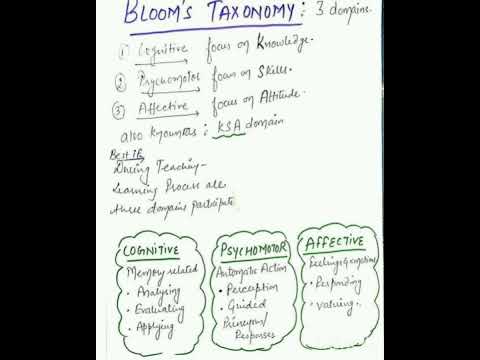 BLOOM'S TAXONOMY: 3 domains.
① Cognitive → focus on Knowledge.
② Psychomotor → focus on Skills.
③ Affective → focus on Attitude.
also known as: KSA domain
During Teaching -
Learning Process all
three domains participate
COGNITIVE
Memory related
• Analysing
• Evaluating
• Applying
PSYCHOMOTOR
Automatic Action
• Perception
• Guided
Responses
AFFECTIVE
Feelings & emotions
• Responding
• Valuing.